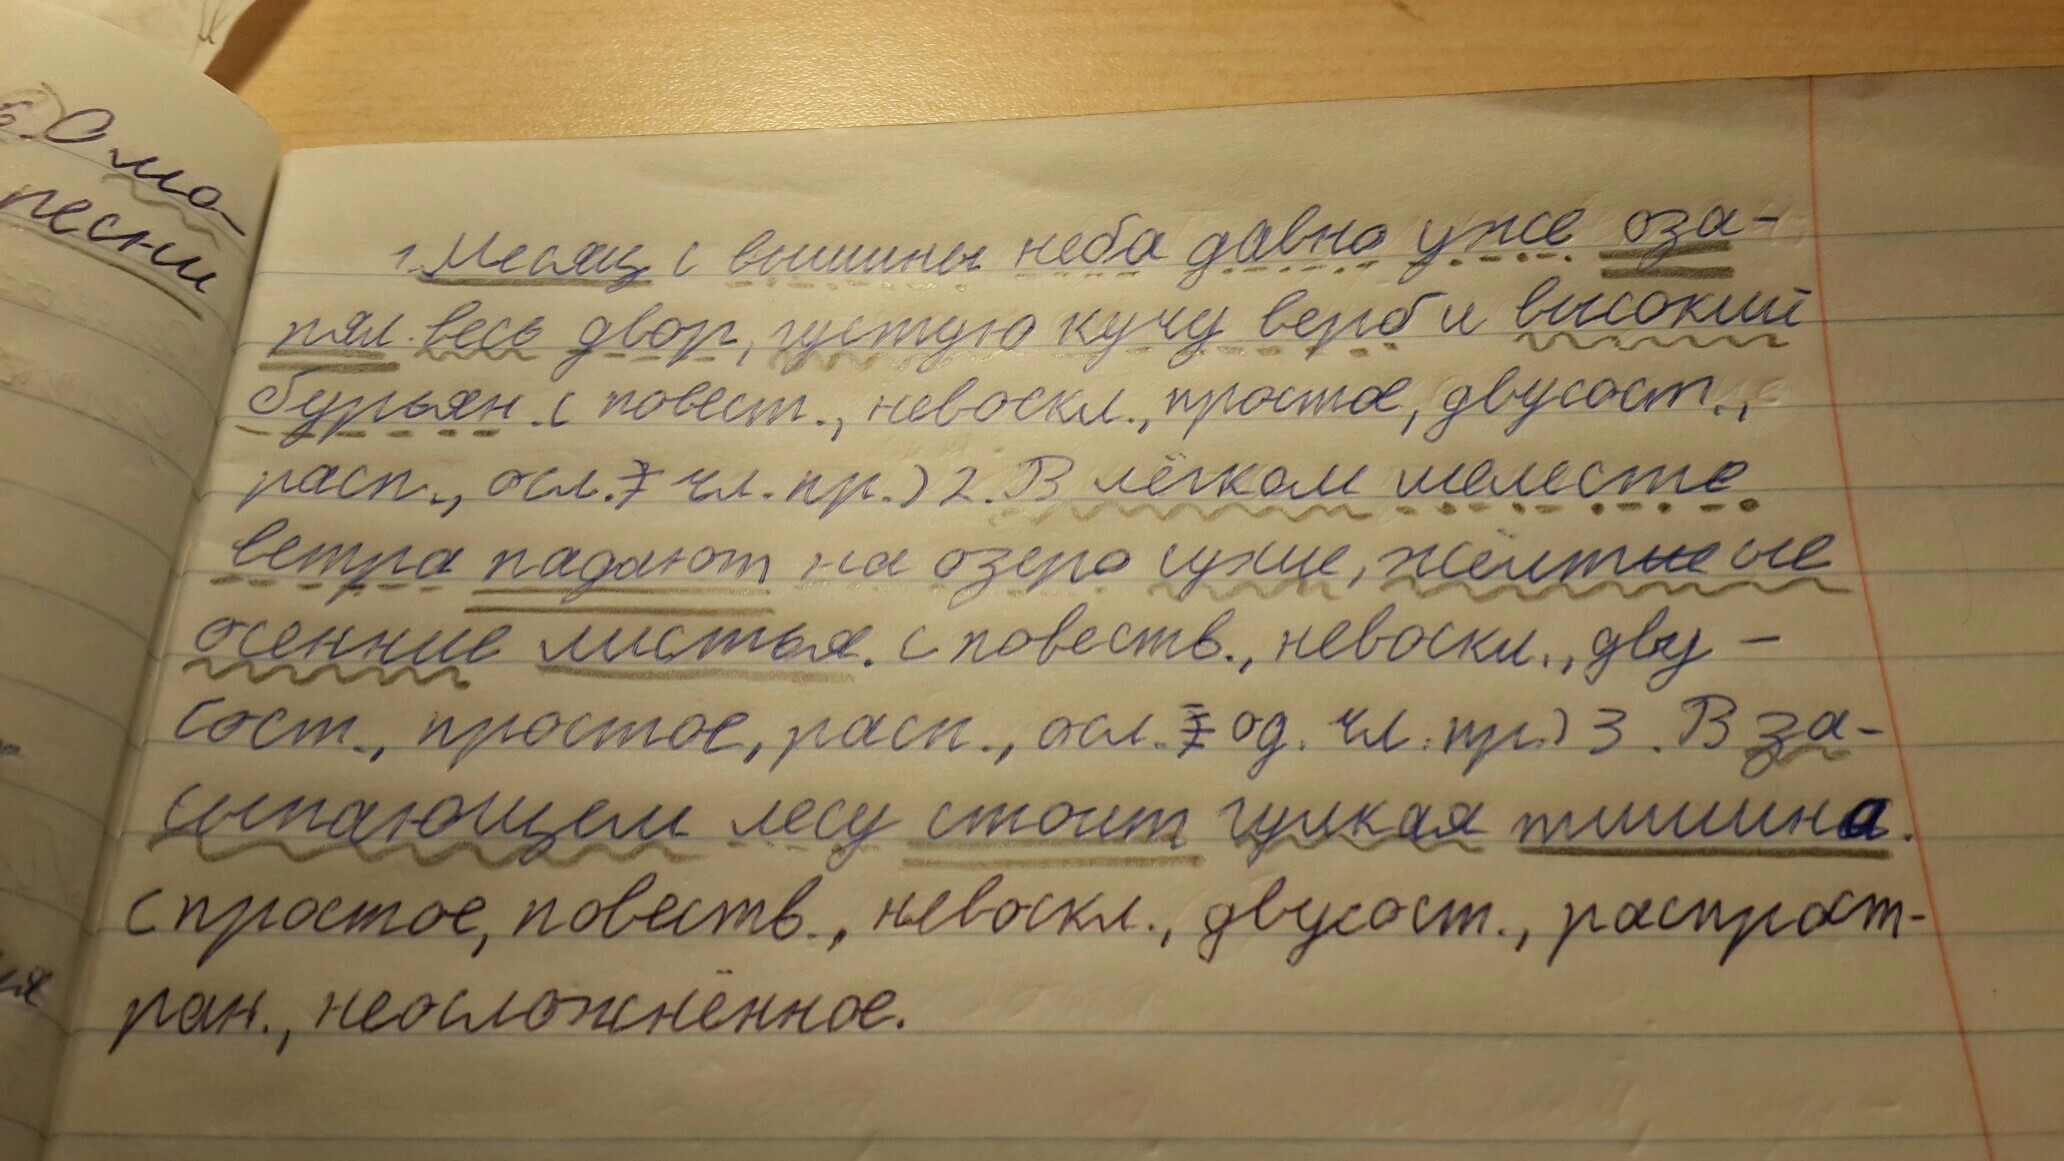 Ома-
песни
1. Месяц с вышины неба давно уже оза-
рял весь двор, густую кучу верб и высокий
бурьян. (повест., невоскл., простое, двусост.,
расп., осл. чл. пр.) 2. В лёгком шелесте
ветра падают на озеро сухие, жёлтые
осенние листья. (повеств., невоскл., дву-
сост., простое, расп., осл. од. чл. пр.) 3. В за-
сыпающем лесу стоит гулкая тишина.
(простое, повеств., невоскл., двусост., распрост-
ран., неосложнённое.